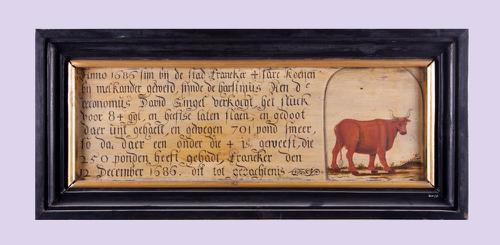 Anno 1686 sijn bij de stad Franeker 4 fare Koeijen
bij melkander geweid, sijnde
œconomus David Singel verkogt het stuck
voor 84 ggl. en heefse laten slaen, en gedoot
daer uijt gehaelt, en gewegen 701 pond smeer,
so da daer een onder die 4 is geweest, die
250 ponden heeft gehadt, Franeker den
12 December 1686. dit tot gedachtenis